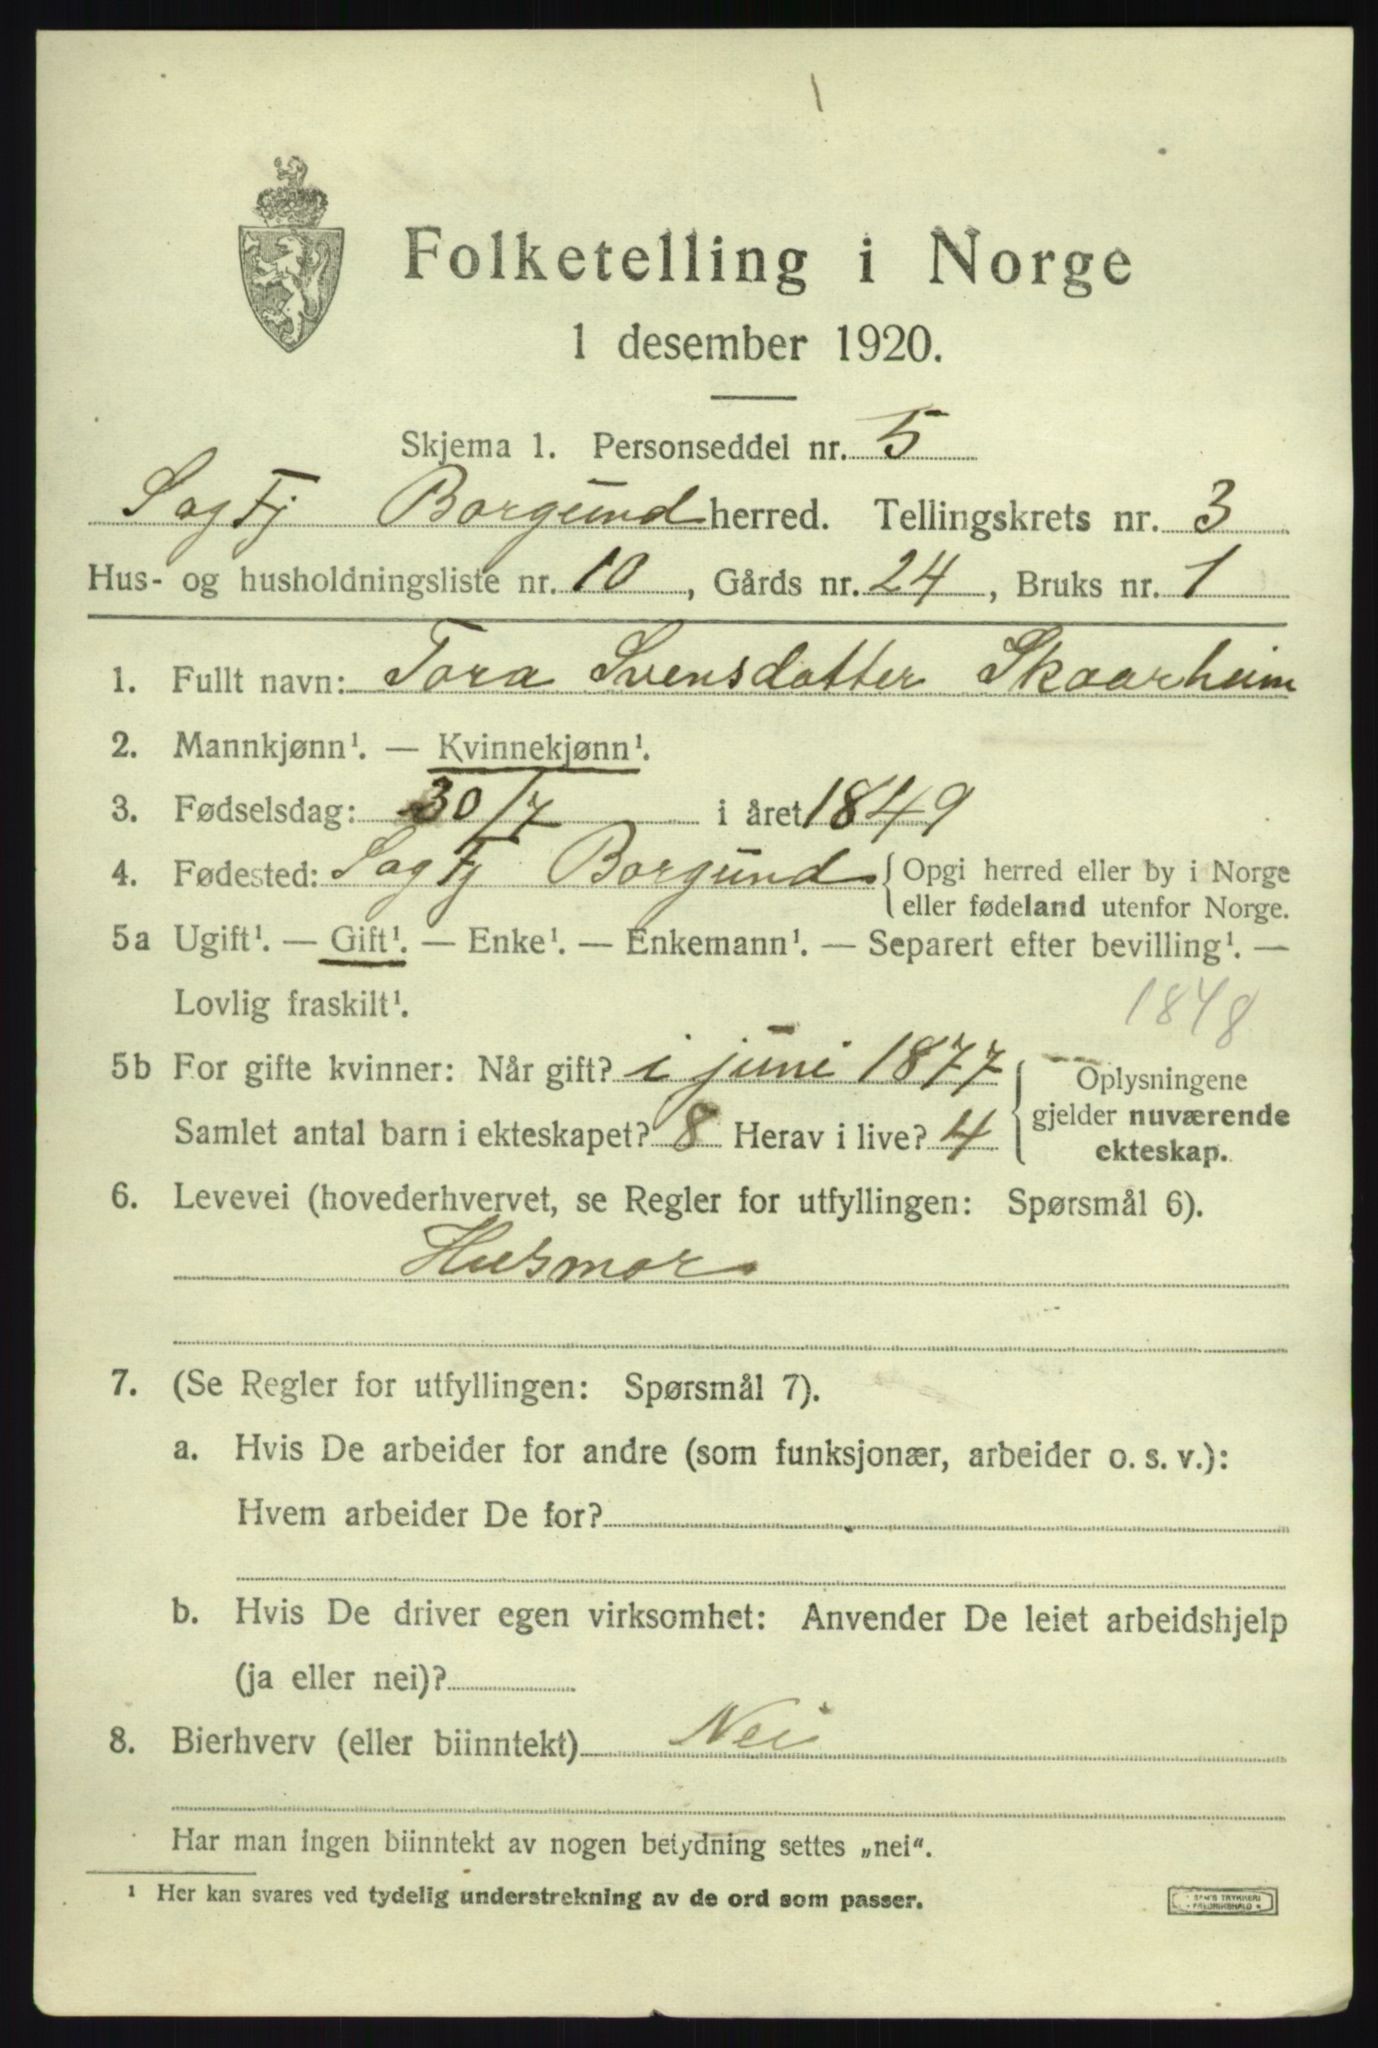 Folketelling i Norge
1 desember 1920.
Skjema 1. Personseddel nr. 5
Sogfj Borgund herred. Tellingskrets nr. 3
Hus- og husholdningsliste nr. 10, Gårds nr. 24, Bruks nr. 1
1. Fullt navn: Tora Svensdotter Skaarheim
2. Mannkjønn¹. — Kvinnekjønn¹.
3. Fødselsdag: 30/7 i året 1849
4. Fødested: Sogfj Borgund { Opgi herred eller by i Norge
eller fødeland utenfor Norge.
5a Ugift¹. — Gift¹. — Enke¹. — Enkemann¹. — Separert efter bevilling¹. —
Lovlig fraskilt¹. 1848
5b For gifte kvinner: Når gift? i juni 1877 { Oplysningene
gjelder nuværende
Samlet antal barn i ekteskapet? 8 Herav i live? 4
ekteskap.
6. Levevei (hovederhvervet, se Regler for utfyllingen: Spørsmål 6).
Husmor
7. (Se Regler for utfyllingen: Spørsmål 7).
a. Hvis De arbeider for andre (som funksjonær, arbeider o. s. v.):
Hvem arbeider De for?
b. Hvis De driver egen virksomhet: Anvender De leiet arbeidshjelp
(ja eller nei)?
8. Bierhverv (eller biinntekt) Nei
Har man ingen biinntekt av nogen betydning settes „nei“.
¹ Her kan svares ved tydelig understrekning av de ord som passer.
TRYKKERI
FREDRIKSHALD